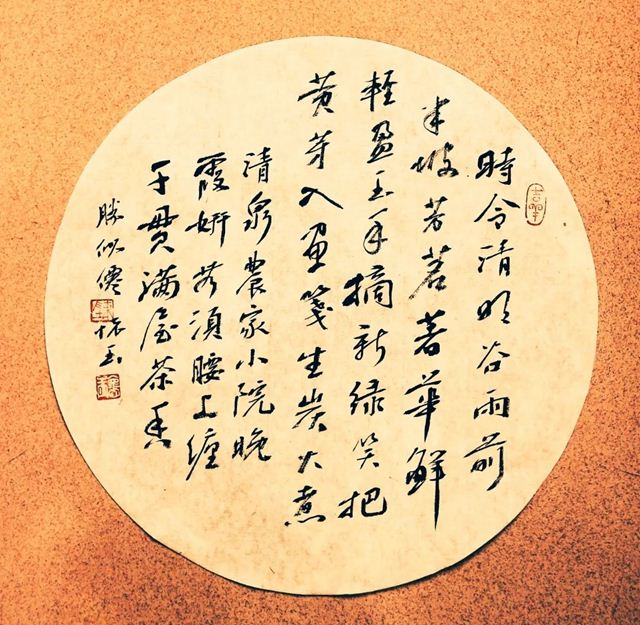 時令清明谷雨前
半坡芳茗著華鮮
輕盈玉手摘新绿笑把
黄芽入画箋生炭火煮
清泉農家小院晚
霞妍須腰上缠
千貫满屋茶香
勝似僊
怀玉